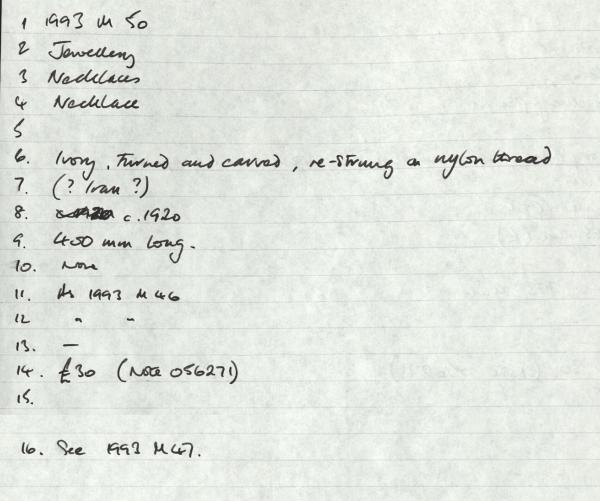 1 1993 M 50
2 Jewellery
3 Necklaces
4 Necklace
5
6. Ivory, turned and carved, re-strung on nylon thread
7. (? Iran ?)
8. c. 1920
9. 450 mm long.
10. None
11. As 1993 M 46
12 " "
13. —
14. £30 (Note 056271)
15.
16. See 1993 M 47.